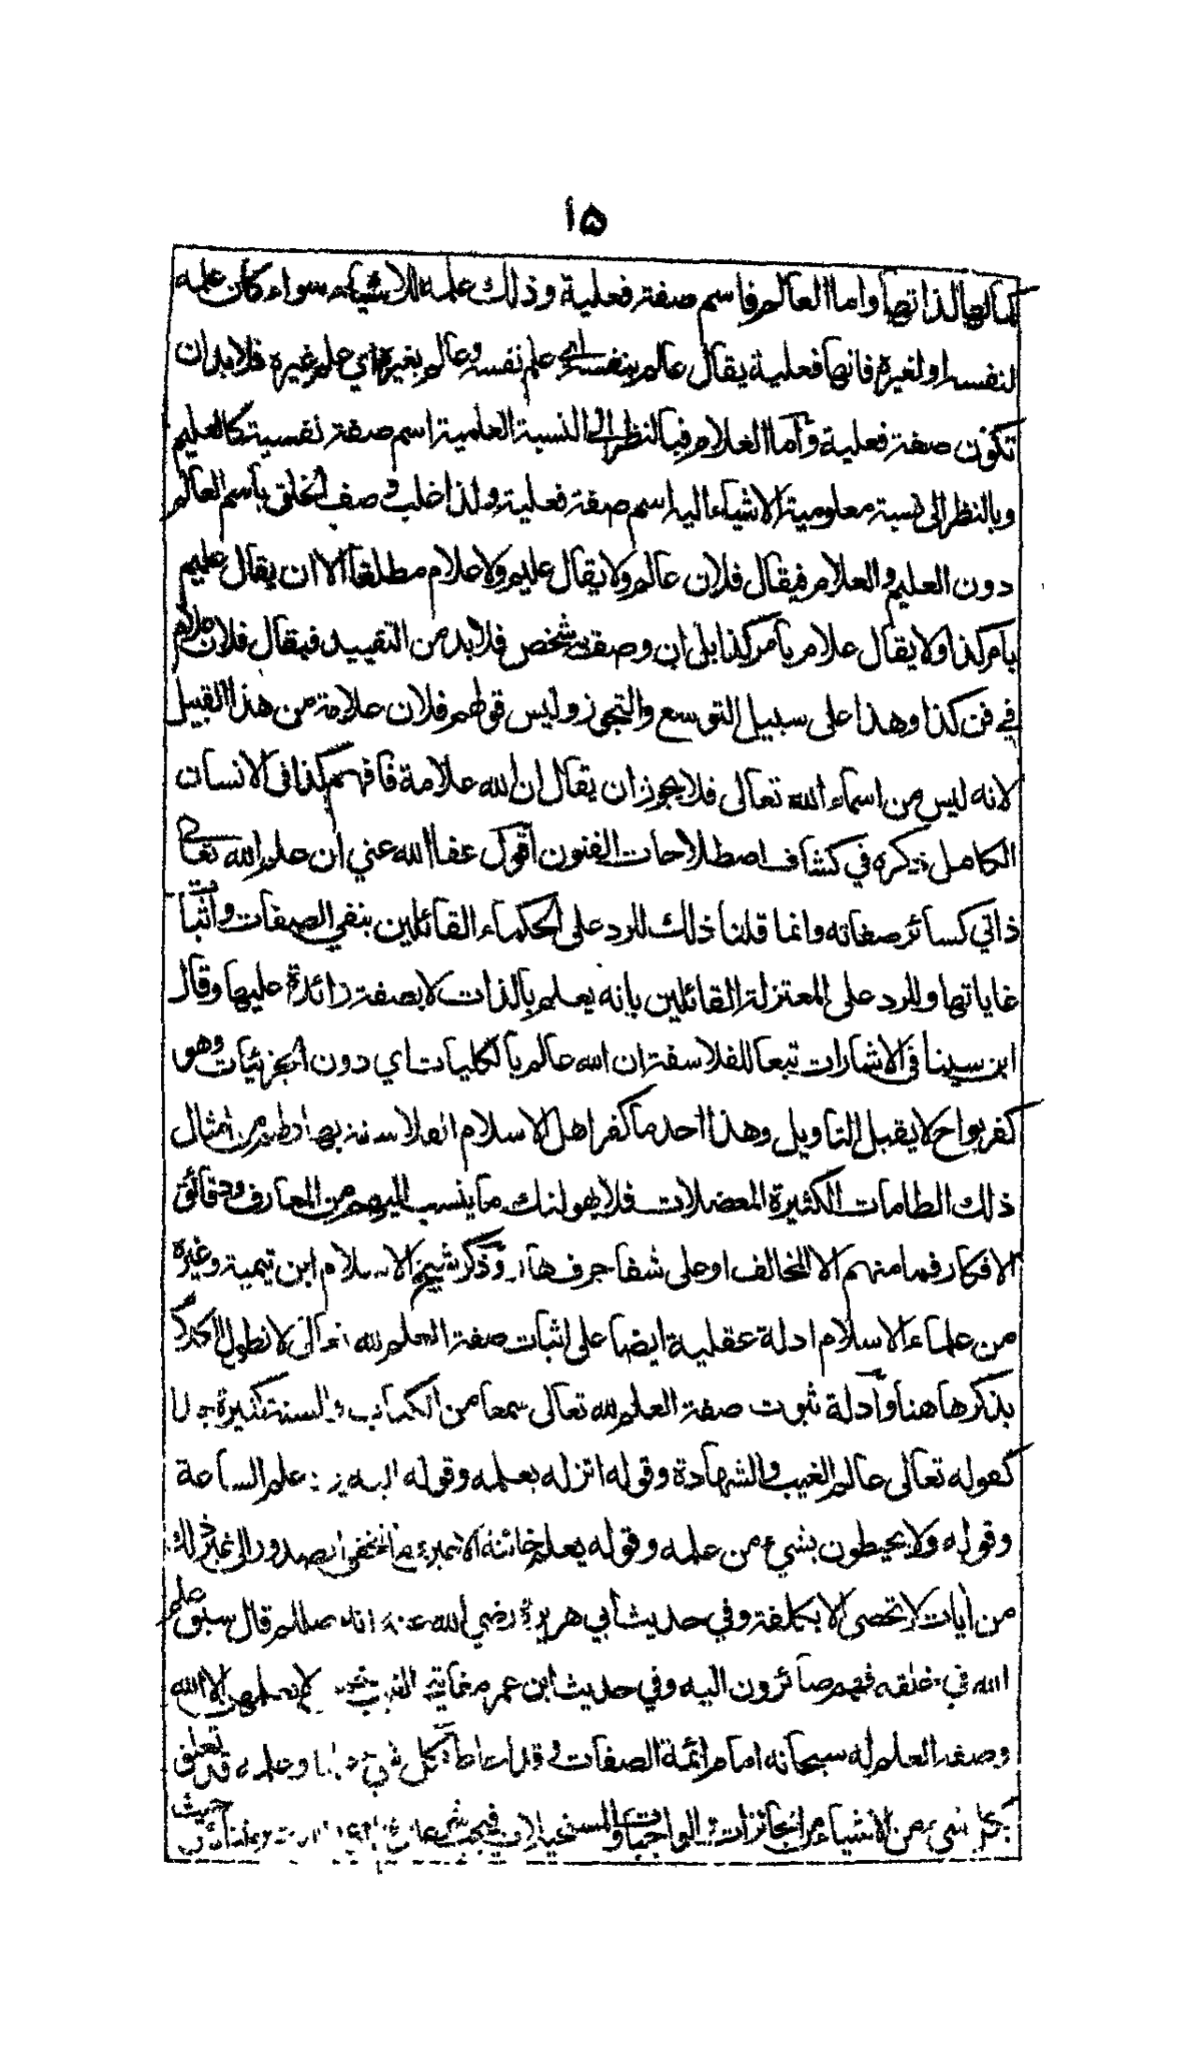 ١٥
كمالها لذاتها واما العالم فاسم صفة فعلية وذلك علمه للاشياء سواء كان علمه
لنفسه او لغيره فانها فعلية يقال عالم بنفسه اي علم نفسه وعالم بغيره اي علم غيره فلا بد ان
تكون صفة فعلية واما العلام فبالنظر الى النسبة العلمية اسم صفة نفسية كالعليم
وبالنظر الى نسبة معلومية الاشياء اليه اسم صفة فعلية ولذا غلب وصف الخلق باسم العالم
دون العليم والعلام فيقال فلان عالم ولا يقال عليم ولا علام مطلقا الا ان يقال عليم
بامر كذا ولا يقال علام بامر كذا بلى ان وصف به شخص فلا بد من التقييد فيقال فلان علام
في فن كذا وهذا على سبيل التوسع والتجوز وليس قولهم فلان علامة من هذا القبيل
لانه ليس من اسماء الله تعالى فلا يجوز ان يقال ان الله علامة فافهم كذا في الانسان
الكامل ذكره في كشاف اصطلاحات الفنون اقول عفا الله عني ان علم الله تعالى
ذاتي كسائر صفاته وانما قلنا ذلك للرد على الحكماء القائلين بنفي الصفات واثبات
غاياتها وللرد على المعتزلة القائلين بانه يعلم بالذات لا بصفة زائدة عليها وقال
ابن سينا في الاشارات تبعا للفلاسفة ان الله عالم بالكليات اي دون الجزئيات وهو
كفر بواح لا يقبل التاويل وهذا احد ما كفر اهل الاسلام الفلاسفة به اذ لهم من امثال
ذلك الطامات الكثيرة المعضلات فلا يهولنك ما ينسب اليهم من المعارف ودقائق
الافكار فما منهم الا المخالف او على شفا جرف هار وذكر شيخ الاسلام ابن تيمية وغيره
من علماء الاسلام ادلة عقلية ايضا على اثبات صفة العلم لله تعالى لا نطول الكلام
بذكرها هنا وادلة ثبوت صفة العلم لله تعالى سمعا من الكتاب والسنة كثيرة جدا
كقوله تعالى عالم الغيب والشهادة وقوله انزله بعلمه وقوله اليه يرد علم الساعة
وقوله ولا يحيطون بشيء من علمه وقوله يعلم خائنة الاعين وما تخفي الصدور الى غير ذلك
من ايات لا تحصى الا بكلفة وفي حديث ابي هريرة رضي الله عنه انه صللم قال سبق علم
الله في خلقه فهم صائرون اليه وفي حديث ابن عمر مفاتيح الغيب خمس لا يعلمهن الا الله
وصفة العلم له سبحانه امام ائمة الصفات وقد احاط بكل شيء علما وعلمه قد تعلق
بكل شيء من الاشياء من الجائزات والواجبات والمستحيلات فيجب حيث